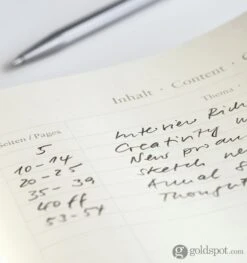 Inhalt · Content ·
Seiten / Pages
Thema
5 Interview Rich
10-14 Creativity
20-25 New produ
35-39 sketch ne
40 ff Annual
53-54 Thought
goldspot.com